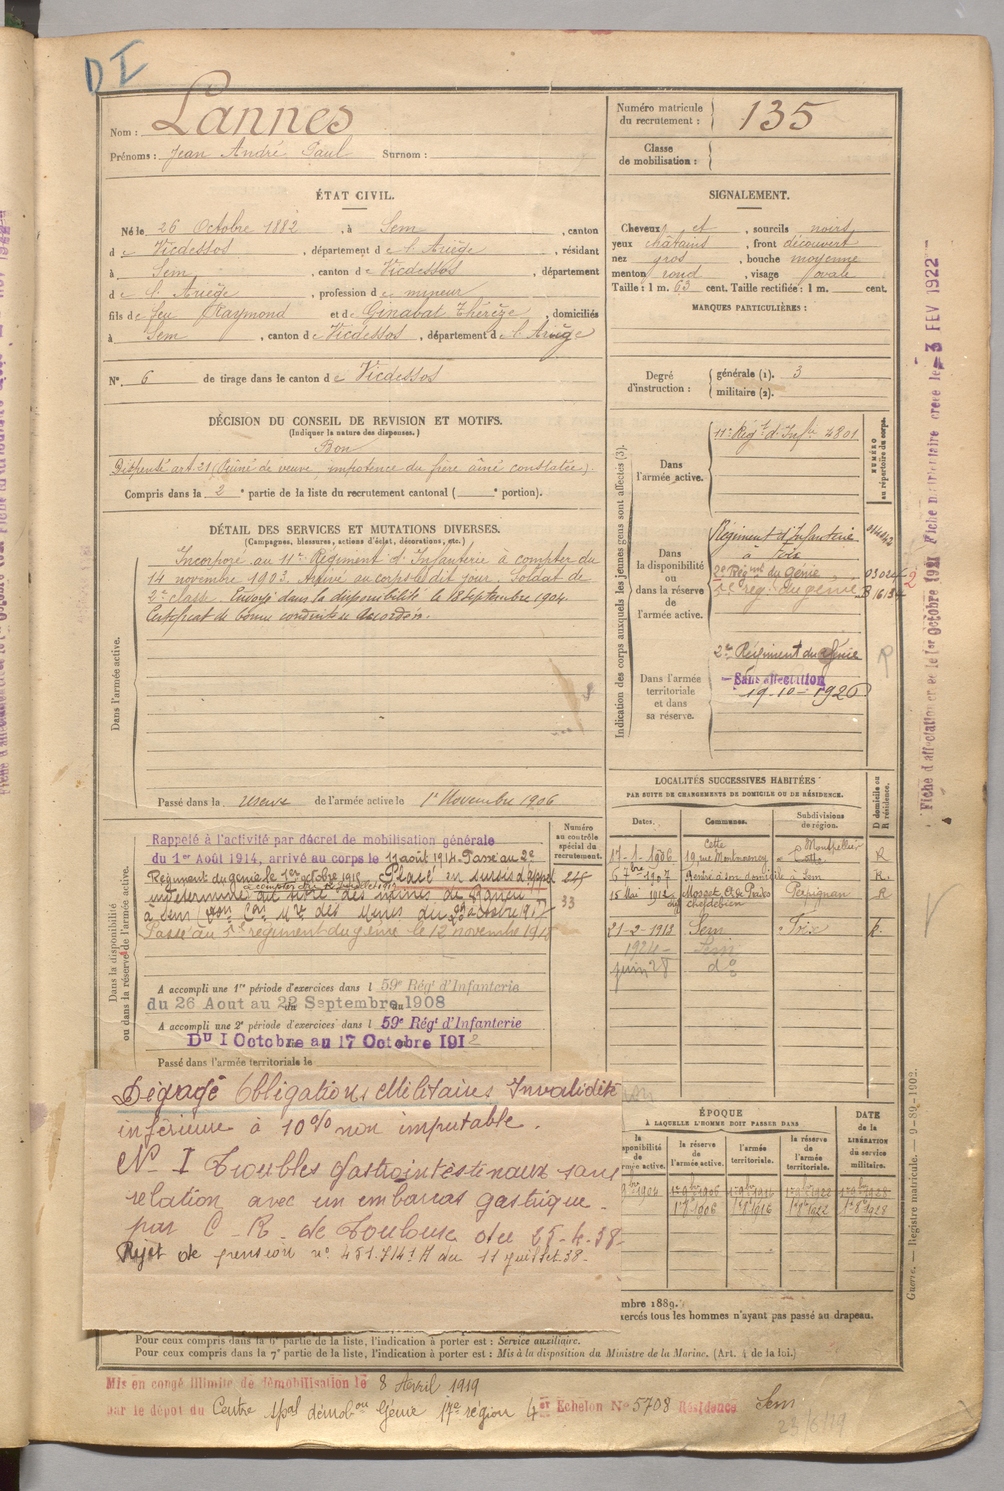 D I
Nom : Lannes
Prénoms : Jean André Paul Surnom :
Numéro matricule du recrutement : 135
Classe de mobilisation :
ÉTAT CIVIL.
Né le 26 Octobre 1882, à Sem, canton
de Vicdessos, département de l'Ariège, résidant
à Sem, canton de Vicdessos, département
de l'Ariège, profession de mineur
fils de feu Raymond et de Ginabal Thérèze, domiciliés
à Sem, canton de Vicdessos, département de l'Ariège
N° 6 de tirage dans le canton de Vicdessos
SIGNALEMENT.
Cheveux et, sourcils noirs
yeux châtains, front découvert
nez gros, bouche moyenne
menton rond, visage ovale
Taille : 1 m. 63 cent. Taille rectifiée : 1 m. cent.
MARQUES PARTICULIÈRES :
Degré d'instruction : générale (1). 3
militaire (2).
DÉCISION DU CONSEIL DE REVISION ET MOTIFS.
(Indiquer la nature des dispenses.)
Bon
Dispensé art 21 (Ainé de veuve, impotence du frère aîné constatée).
Compris dans la 2e partie de la liste du recrutement cantonal ( e portion).
DÉTAIL DES SERVICES ET MUTATIONS DIVERSES.
(Campagnes, blessures, actions d'éclat, décorations, etc.)
Dans l'armée active.
Incorporé au 11e Régiment d'Infanterie à compter du
14 novembre 1903. Arrivé au corps le dit jour. Soldat de
2e classe. Envoyé dans la disponibilité le 18 septembre 1904.
Certificat de bonne conduite accordé.
Passé dans la réserve de l'armée active le 1er Novembre 1906
Indication des corps auxquels les jeunes gens sont affectés (3).
NUMÉRO au répertoire du corps.
Dans l'armée active.
11e Régt d'Infie 4801
Dans la disponibilité ou dans la réserve de l'armée active.
Régiment d'Infanterie
à Foix
2e Régment du génie
rég. du génie
Dans l'armée territoriale et dans sa réserve.
2e Régiment du Génie
Sans affectation
19-10-1926
R
LOCALITÉS SUCCESSIVES HABITÉES
PAR SUITE DE CHANGEMENTS DE DOMICILE OU DE RÉSIDENCE.
Dates. Communes. Subdivisions de région. D domicile ou R résidence.
17-1-1906 Cette 19, rue Montmorency Montpellier R
7bre 1907 à Sem R.
15 Mai 1912 Mosset Perpignan R
21-2-1913 Sem Foix R.
1924 Sem
juin 28 do
Dans la disponibilité ou dans la réserve de l'armée active.
Numéro au contrôle spécial du recrutement.
Rappelé à l'activité par décret de mobilisation générale
du 1er Août 1914, arrivé au corps le 11 août 1914. Passé au 2e
Régiment du génie le 1er octobre 1915 Placé en sursis d'appel
indéterminé au des mines de
à Sem
Passé au régiment du génie le 12 novembre
33
A accompli une 1re période d'exercices dans l 59e Régt d'Infanterie
du 26 Aout au 22 Septembre 1908
A accompli une 2e période d'exercices dans l 59e Régt d'Infanterie
DU 1 Octobre au 17 Octobre 1912
Passé dans l'armée territoriale le
Dégagé Obligations Militaires Invalidité
inférieure à 10% non imputable.
N° I Troubles gastrointestinaux sans
relation avec un embarras gastrique.
par C. R. de Toulouse du 25-4-38.
Rejet de pension n° du 11 juillet 38.
ÉPOQUE
À LAQUELLE L'HOMME DOIT PASSER DANS
la réserve de l'armée active.
l'armée territoriale.
la réserve de l'armée territoriale.
DATE de la LIBÉRATION du service militaire.
1er 8bre 1906 1er 8bre 1916 1er 8bre 1922 1er 8bre 1928
mbre 1889.
xercés tous les hommes n'ayant pas passé au drapeau.
Pour ceux compris dans la 6e partie de la liste, l'indication à porter est : Service auxiliaire.
Pour ceux compris dans la 7e partie de la liste, l'indication à porter est : Mis à la disposition du Ministre de la Marine. (Art. 4 de la loi.)
Mis en congé illimité de démobilisation le 8 Avril 1919
par le dépôt du Centre démobon Génie 17e région 4e Echelon N° 5708 Résidence Sem
Guerre. — Registre matricule. — 9-89-1902.